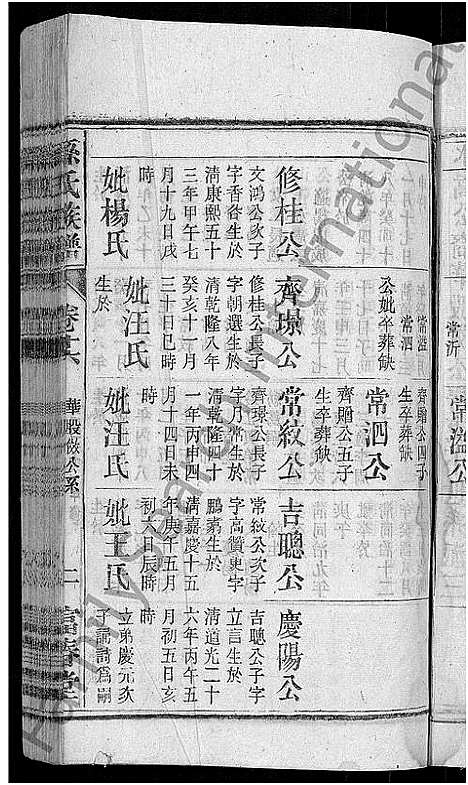 常溢
常泗
公妣卒葬缺
齊贈公四子
生卒葬缺
常泗公
齊贈公五子
生卒葬缺
修桂公
文鴻公次子
字香谷生於
清康熙五十
三年甲午七
月十九日戌
時
妣楊氏
齊璟公
修桂公長子
字朝選生於
清乾隆八年
癸亥十一月
三十日巳時
妣汪氏
生於
常紋公
齊璟公長子
字月常生於
清乾隆四十
一年丙申四
月十四日未
時
妣汪氏
吉聰公
常紋公次子
字高贊更字
鵬素生於
清嘉慶十五
年庚午五月
初六日辰時
妣王氏
慶陽公
吉聰公子字
立言生於
清道光二十
六年丙午五
月初五日亥
時
立弟慶元次
子詩為嗣
孫氏族譜
卷十六
華股做公系
二
富春堂
常沂
常溢公
FamilySearch International